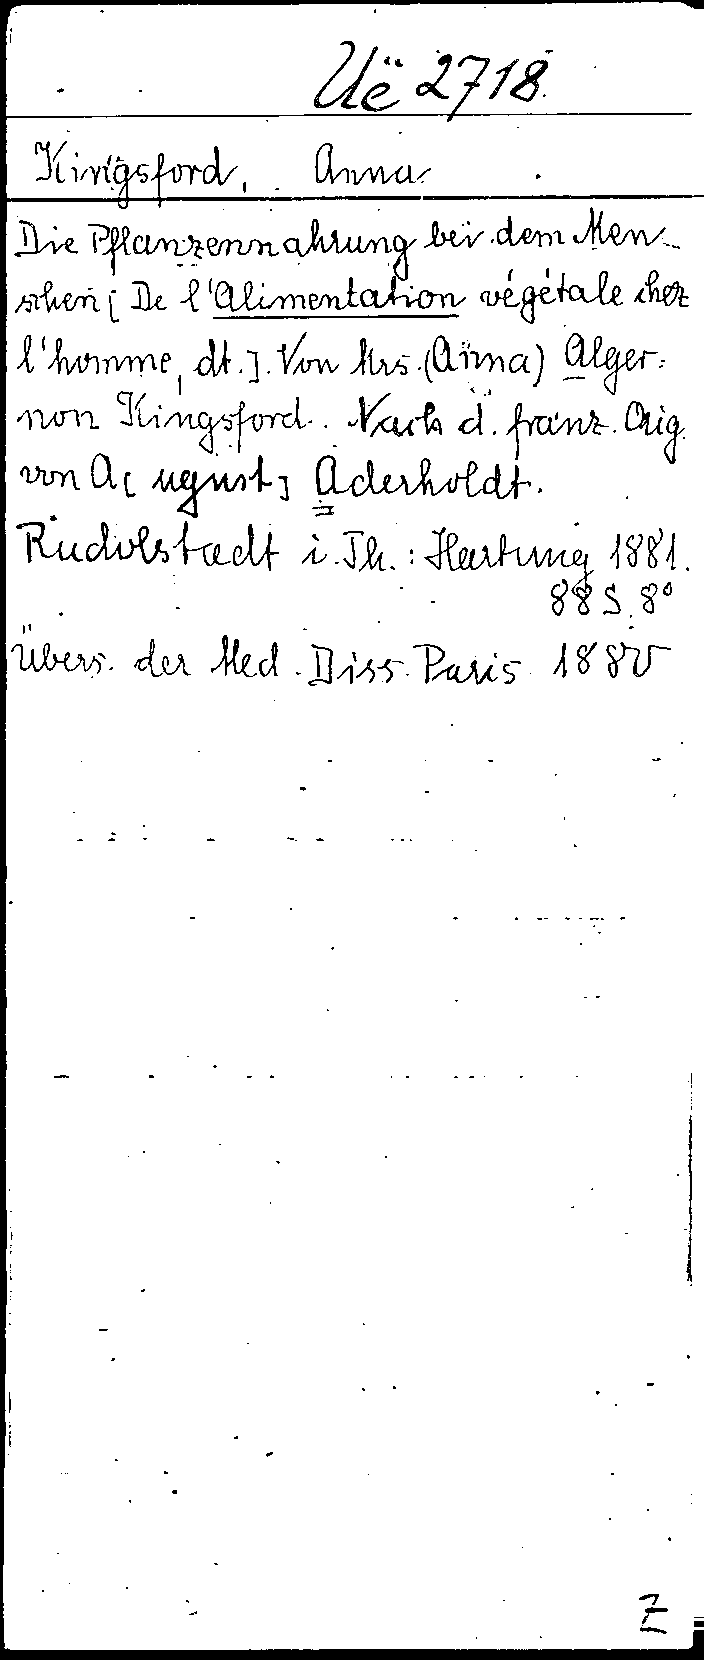 Uë 2718
Kingsford, Anna
Die Pflanzennahrung bei dem Men-
schen [De l'Alimentation végétale chez
l'homme, dt.]. Von Mrs. (Anna) Alger-
non Kingsford. Nach d. franz. Orig.
von A[ugust] Aderholdt.
Rudolstadt i. Th.: Hartung 1881.
88 S. 8°
Übers. der Med. Diss. Paris 1880
Z